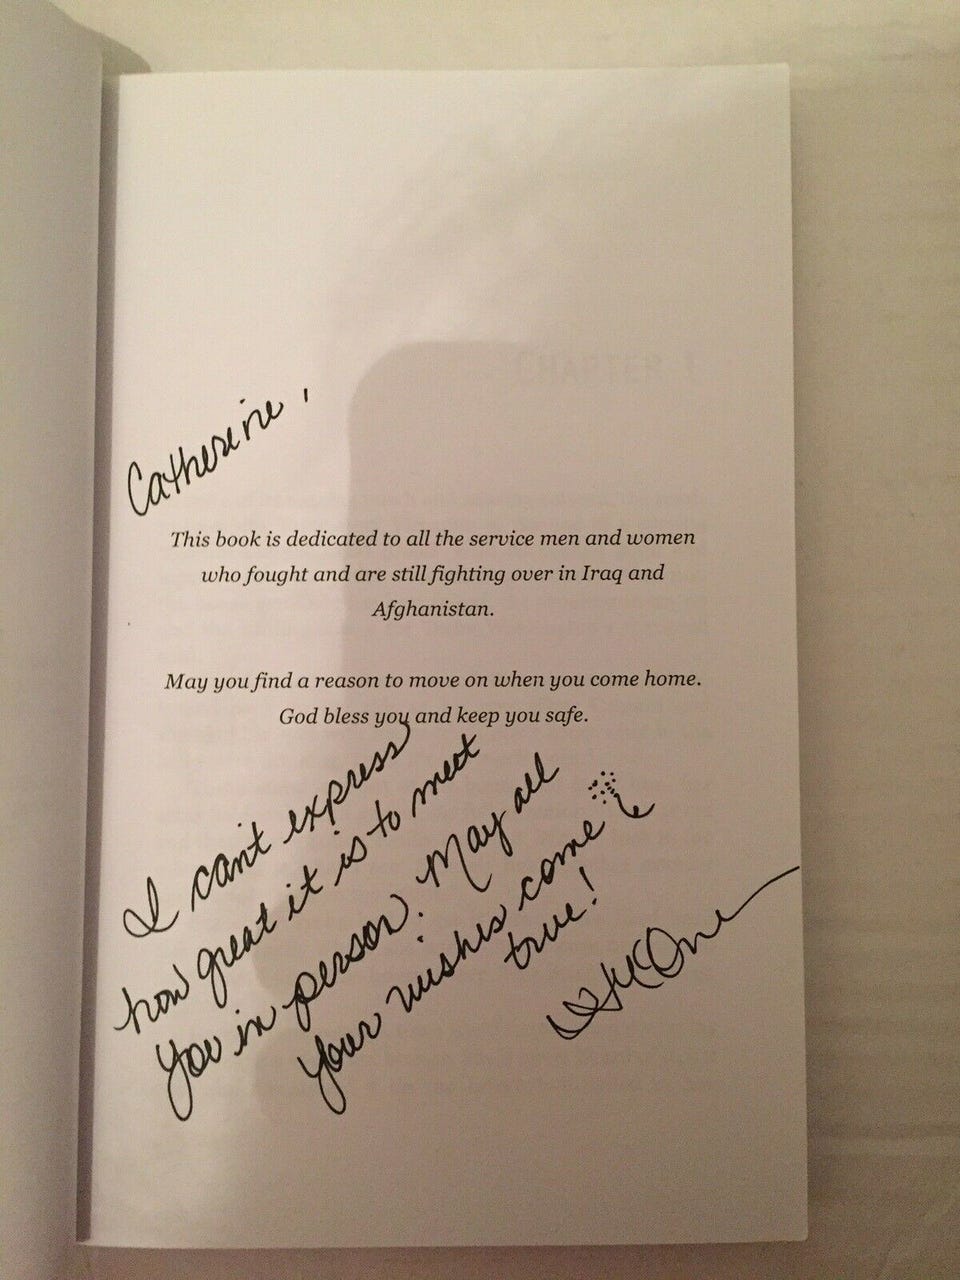 CHAPTER 1
Catherine,
This book is dedicated to all the service men and women
who fought and are still fighting over in Iraq and
Afghanistan.
May you find a reason to move on when you come home.
God bless you and keep you safe.
I can't express
how great it is to meet
you in person. May all
your wishes come
true!